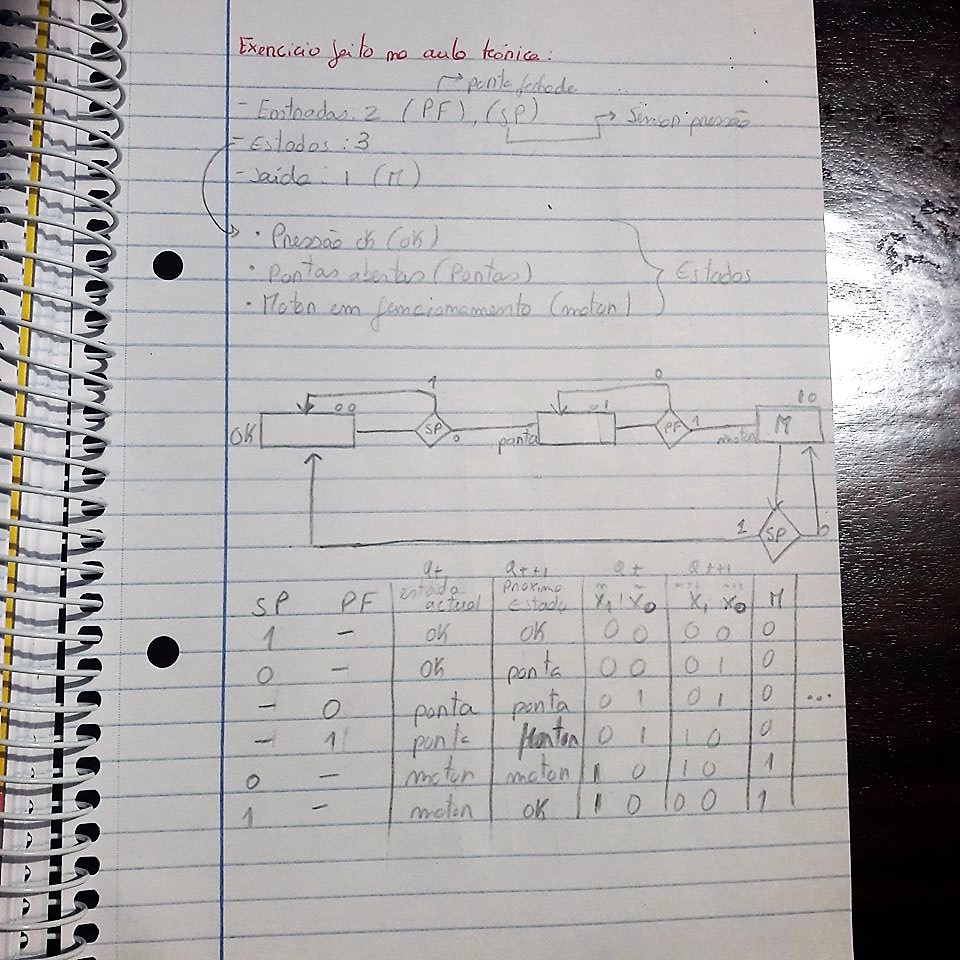 Exercicio feito na aula teórica:
→ porta fechada
- Entradas: 2 (PF), (SP) → Sensor pressão
- Estados: 3
- Saída: 1 (M)
• Pressão ok (OK)
• Portas abertas (Portas) Estados
• Motor em funcionamento (motor)
1 0
00 01 10
OK SP 0 porta PF 1 motor M
1 SP 0
Qt Qt+1 Qt Qt+1
SP PF estado actual próximo estado X1 X0 X1 X0 M
1 - OK OK 0 0 0 0 0
0 - OK porta 0 0 0 1 0
- 0 porta porta 0 1 0 1 0 ...
- 1 porta Motor 0 1 1 0 0
0 - motor motor 1 0 1 0 1
1 - motor OK 1 0 0 0 1